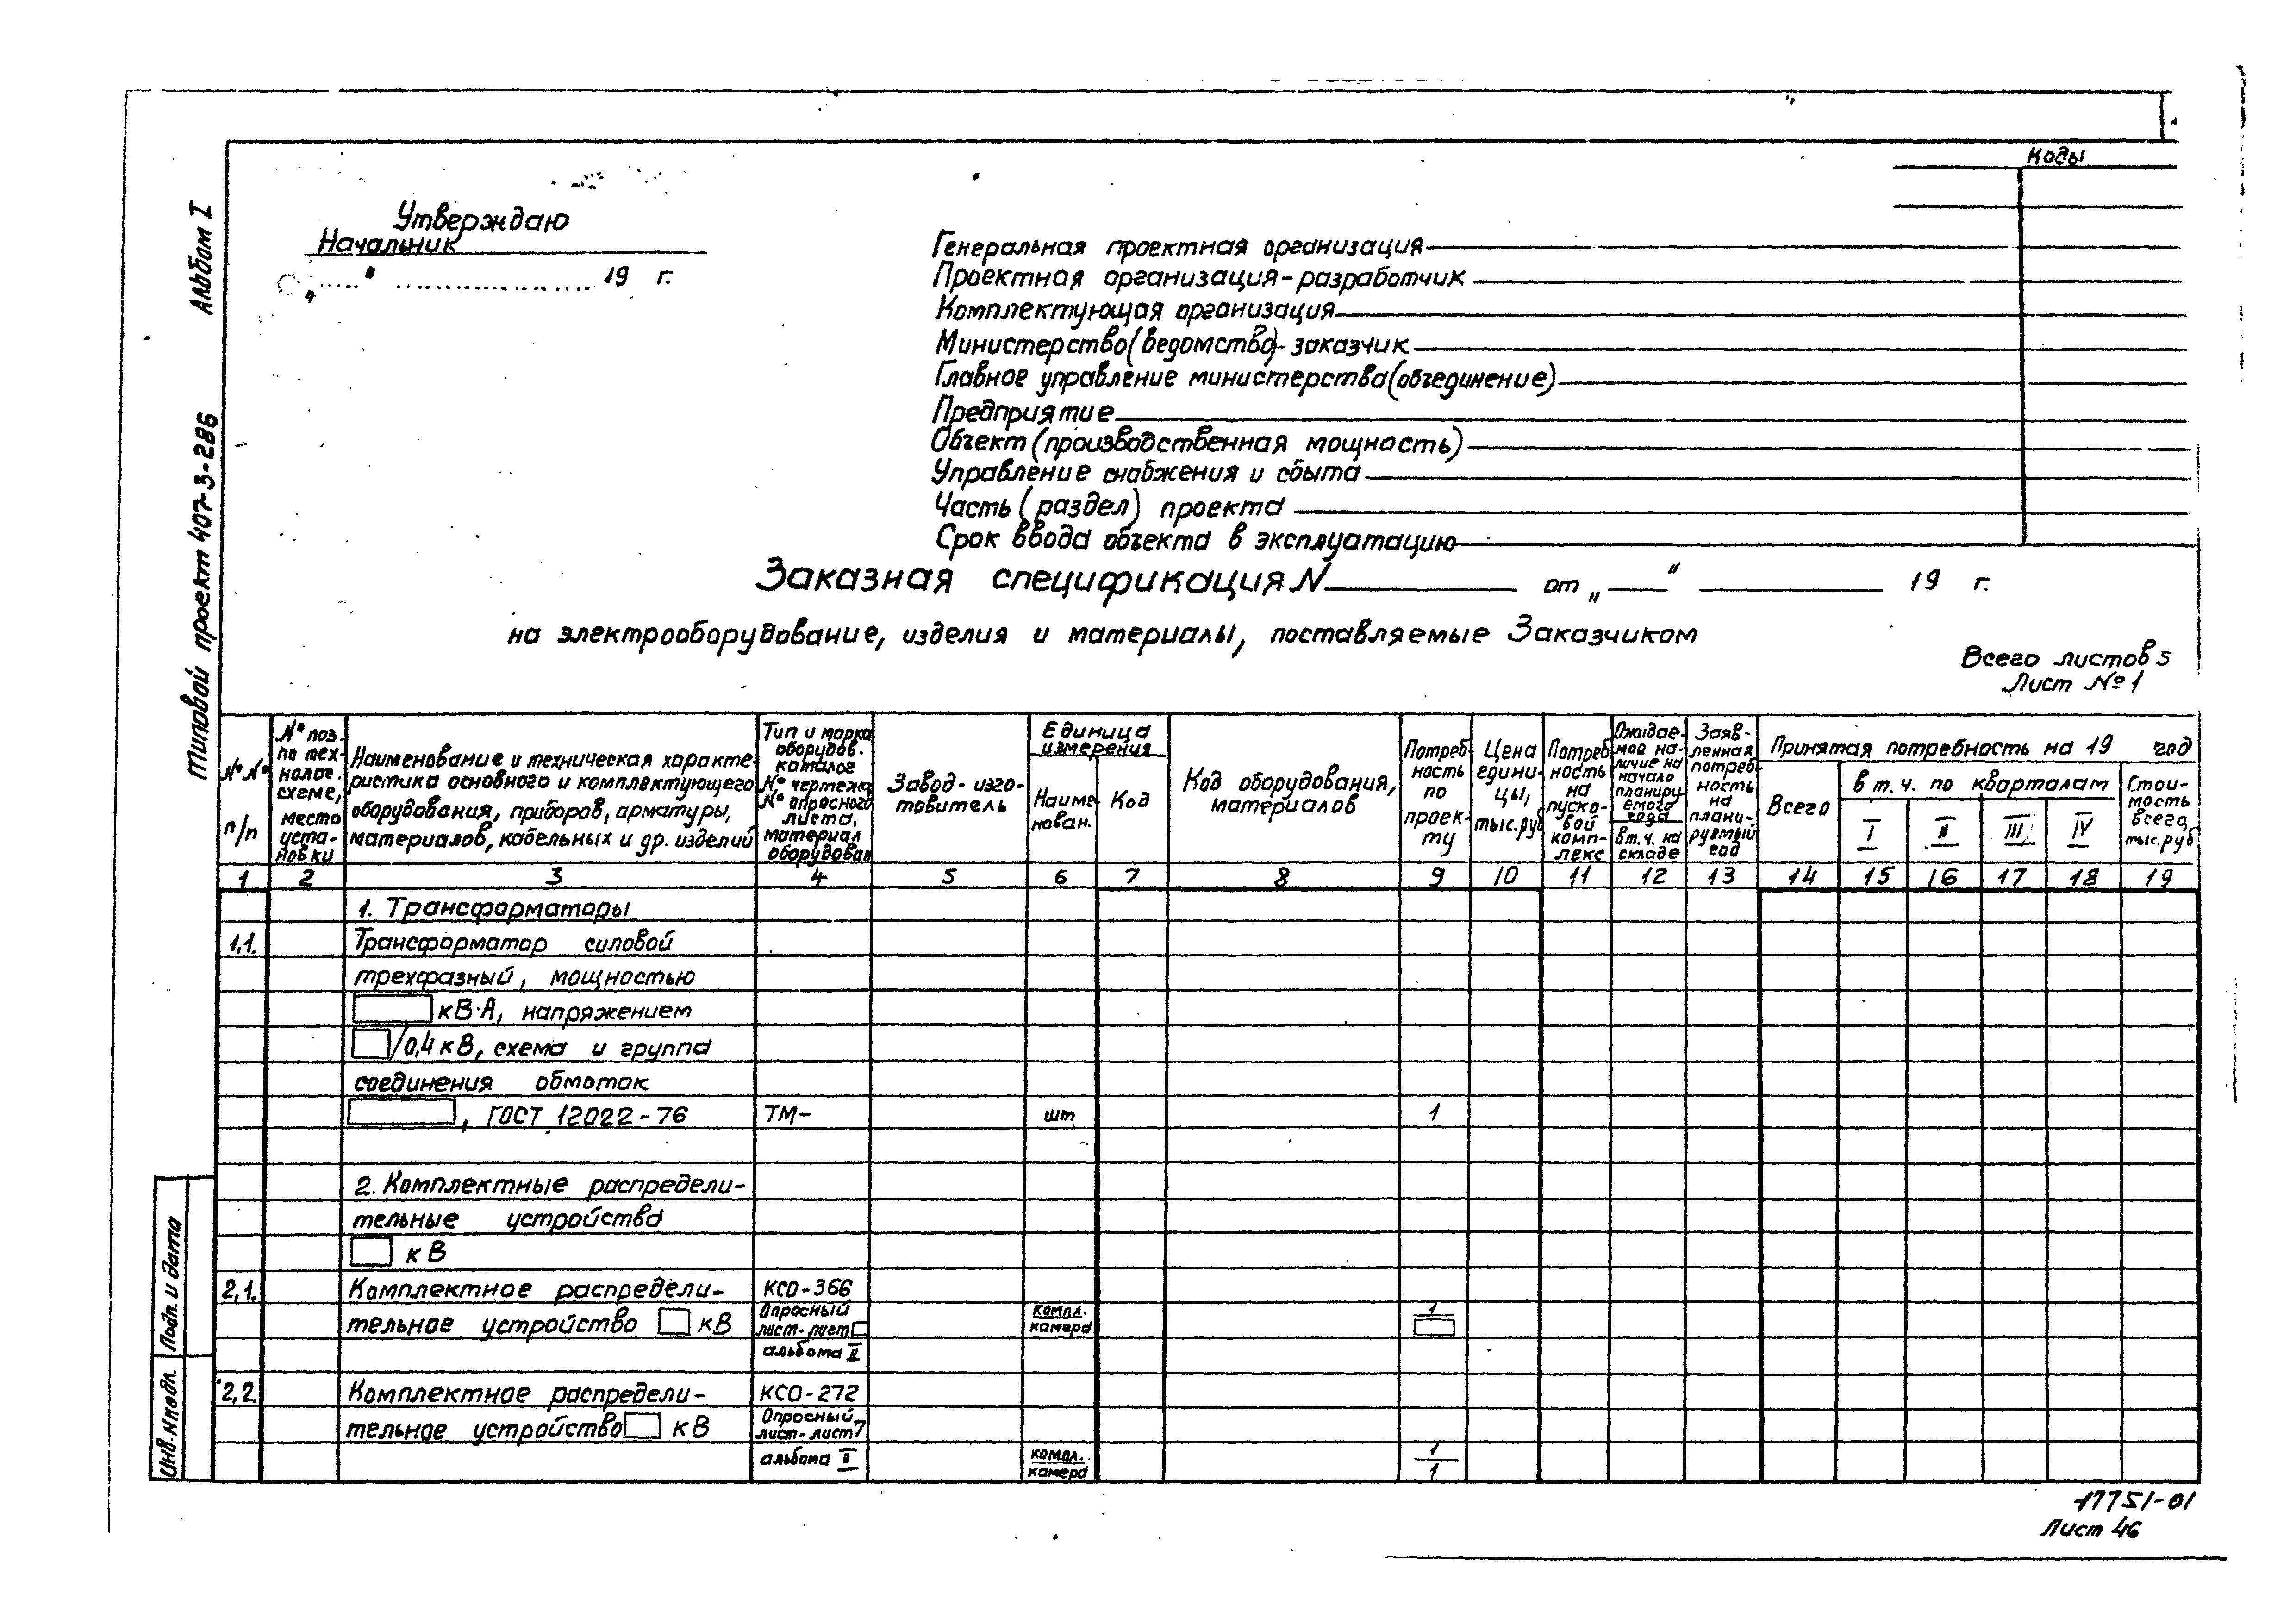 Коды
Утверждаю
Начальник
„ " 19 г.
Генеральная проектная организация
Проектная организация-разработчик
Комплектующая организация
Министерство (ведомство)-заказчик
Главное управление министерства (объединение)
Предприятие
Объект (производственная мощность)
Управление снабжения и сбыта
Часть (раздел) проекта
Срок ввода объекта в эксплуатацию
Заказная спецификация N от „ " 19 г.
на электрооборудование, изделия и материалы, поставляемые Заказчиком
Всего листов 5
Лист №1
Альбом I
Типовой проект 407-3-286
№№
п/п
№ поз.
по тех-
нолог.
схеме,
место
уста-
новки
Наименование и техническая характе-
ристика основного и комплектующего
оборудования, приборов, арматуры,
материалов, кабельных и др. изделий
Тип и марка
оборудов.
каталог
№ чертежа
№ опросного
листа.
материал
оборудован
Завод-изго-
товитель
Единица
измерения
Наиме-
нован.
Код
Код оборудования,
материалов
Потреб-
ность
по
проек-
ту
Цена
едини-
цы,
тыс.руб
Потреб
ность
на
пуско-
вой
комп-
лекс
Ожидае-
мое на-
личие на
начало
планиру
емого
года
в т. ч. на
складе
Заяв-
ленная
потреб-
ность
на
плани-
руемый
год
Принятая потребность на 19 год
Всего
в т. ч. по кварталам
I II III IV
Стои-
мость
всего,
тыс.руб
1 2 3 4 5 6 7 8 9 10 11 12 13 14 15 16 17 18 19
1. Трансформаторы
1,1. Трансформатор силовой
трехфазный, мощностью
кВ·А, напряжением
/0,4 кВ, схема и группа
соединения обмоток
, ГОСТ 12022-76 ТМ- шт. 1
2. Комплектные распредели-
тельные устройства
кВ
2,1. Комплектное распредели- КСО-366
тельное устройство кВ Опросный
лист-лист
альбома II
компл.
камера
1
2,2. Комплектное распредели- КСО-272
тельное устройство кВ Опросный
лист-лист 7
альбома II
компл.
камера
1
1
Подп. и дата
Инв. N подл.
17751-01
Лист 46